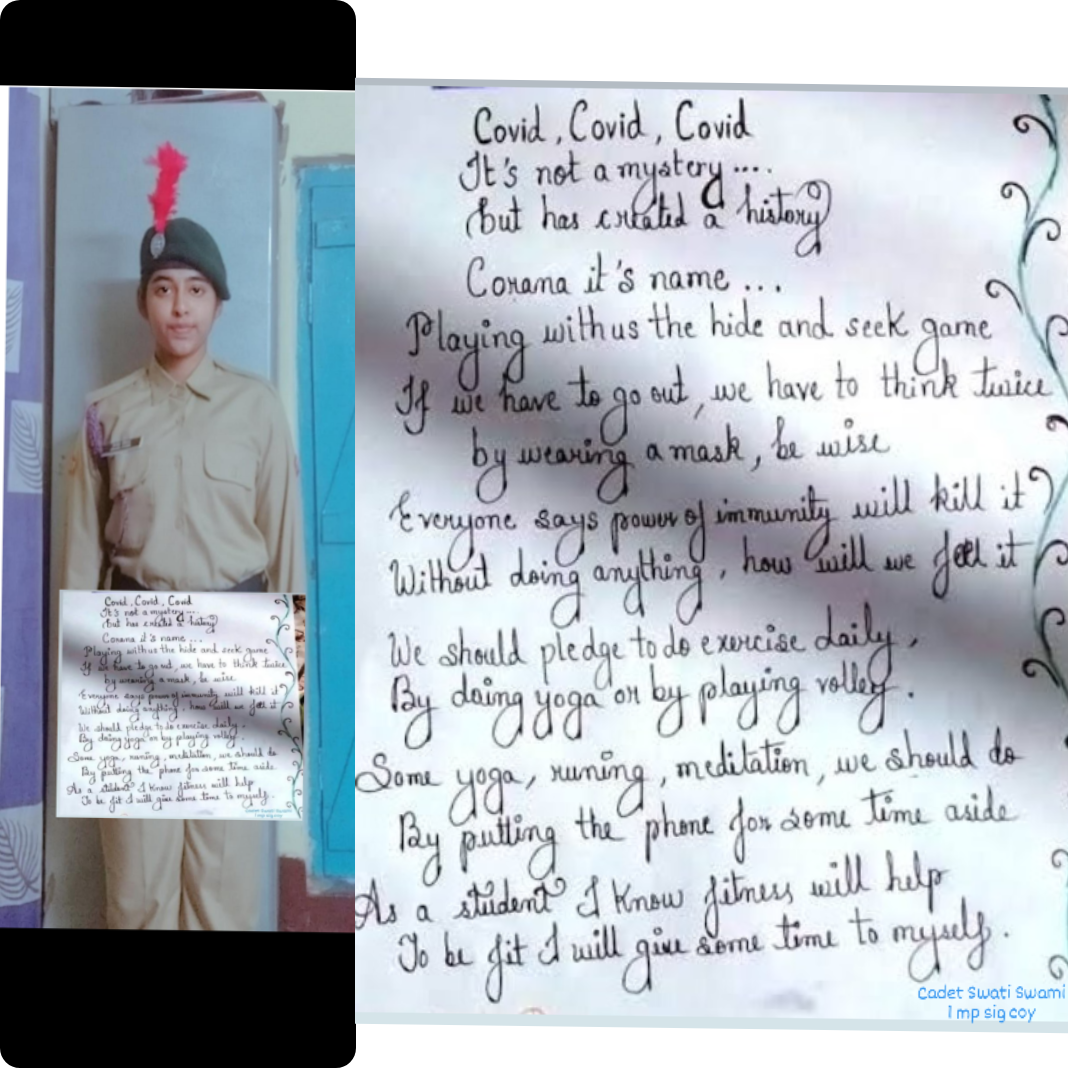 Covid, Covid, Covid
It's not a mystery....
But has created a history
Corana it's name ...
Playing with us the hide and seek game
If we have to go out, we have to think twice
by wearing a mask, be wise
Everyone says power of immunity will kill it
Without doing anything, how will we feel it
We should pledge to do exercise daily,
By doing yoga or by playing volley.
Some yoga, runing, meditation, we should do
By putting the phone for some time aside
As a student I know fitness will help
To be fit I will give some time to myself.
Cadet Swati Swami
1 mp sig coy
Covid, Covid, Covid
It's not a mystery....
But has created a history
Corana it's name ...
Playing with us the hide and seek game
If we have to go out, we have to think twice
by wearing a mask, be wise
Everyone says power of immunity will kill it
Without doing anything, how will we feel it
We should pledge to do exercise daily,
By doing yoga or by playing volley.
Some yoga, runing, meditation, we should do
By putting the phone for some time aside
As a student I know fitness will help
To be fit I will give some time to myself.
Cadet Swati Swami
1 mp sig coy